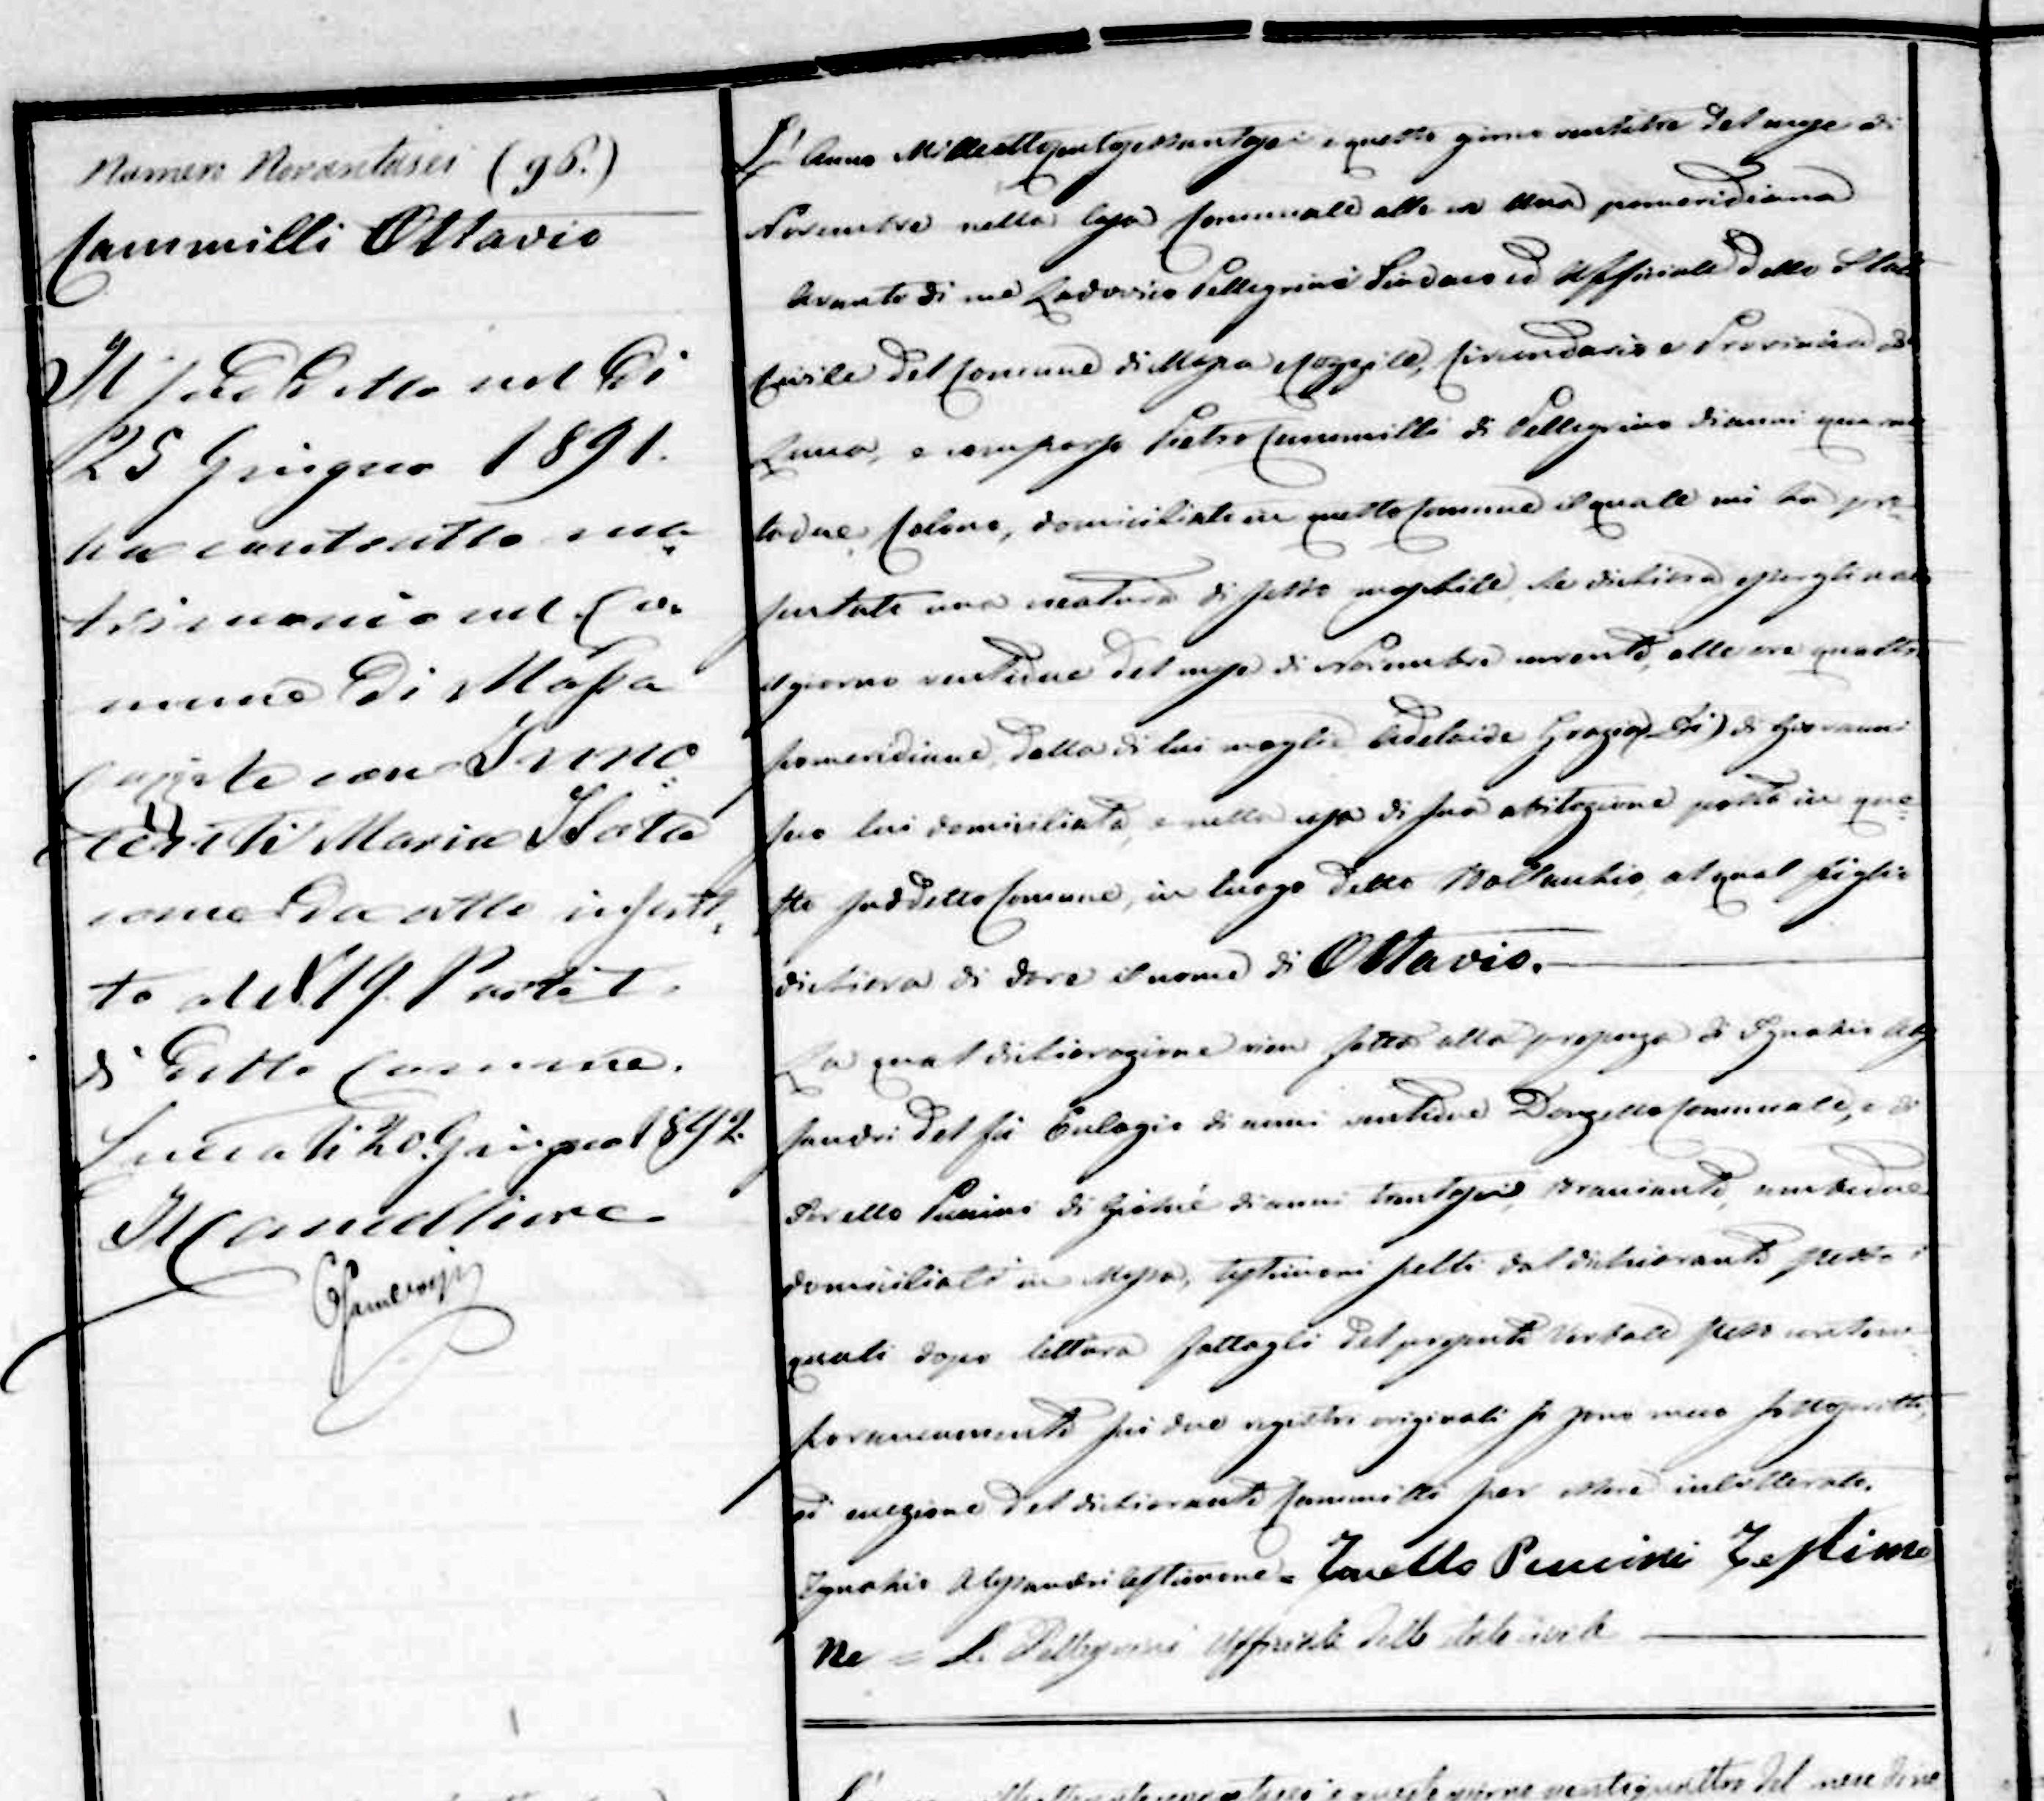 Numero Novantasei (96.)
Cammilli Ottavio
Il suddetto nel di
25 Giugno 1891.
ha contratto ma-
trimonio nel Co-
mune di Massa
e Cozzile con Inno
centi Maria Isola
come da atto inscrit-
to al N 19. Parte I.
di detto Comune.
Lucca li 20. Giugno 1892.
Il Cancelliere
L' Anno Milleottocentosessantasei e questo giorno ventitre del mese di
Novembre nella Casa Comunale alle ore una pomeridiana
Avanti di me Lodovico Pellegrini Sindaco ed Uffiziale dello Stato
Civile del Comune di Massa e Cozzile, Circondario e Provincia di
Lucca, è comparso Pietro Cammilli di Pellegrino di anni quaran-
tadue, Colono, domiciliato in questo Comune il quale mi ha pre-
sentato una creatura di sesso maschile, che dichiara essergli nata
il giorno ventidue del mese di Novembre corrente, alle ore quattro
pomeridiane, dalla di lui moglie Adelaide Grazia(Di) di Giovanni
seco lui domiciliata, e nella casa di sua abitazione posta in que-
sto suddetto Comune, in luogo detto al qual figlio
dichiara di dare il nome di Ottavio.
La qual dichiarazione vien fatta alla presenza di Ignazio Ales
sandri del fù Eulogio di anni ventidue Donzello Comunale, e di
Torello Puccini di Giosuè di anni trentasei, Bracciante, ambedue
domiciliati in Massa, testimoni scelti dal dichiarante stesso i
quali dopo lettura fattagli del presente Verbale steso contem-
poraneamente sui due registri originali si sono meco sottoscritti,
ad eccezione del dichiarante Cammilli per essere inletterato.
Ignazio Alessandri testimone = Torello Puccini Testimo
ne = L. Pellegrini Uffiziale dello stato civile